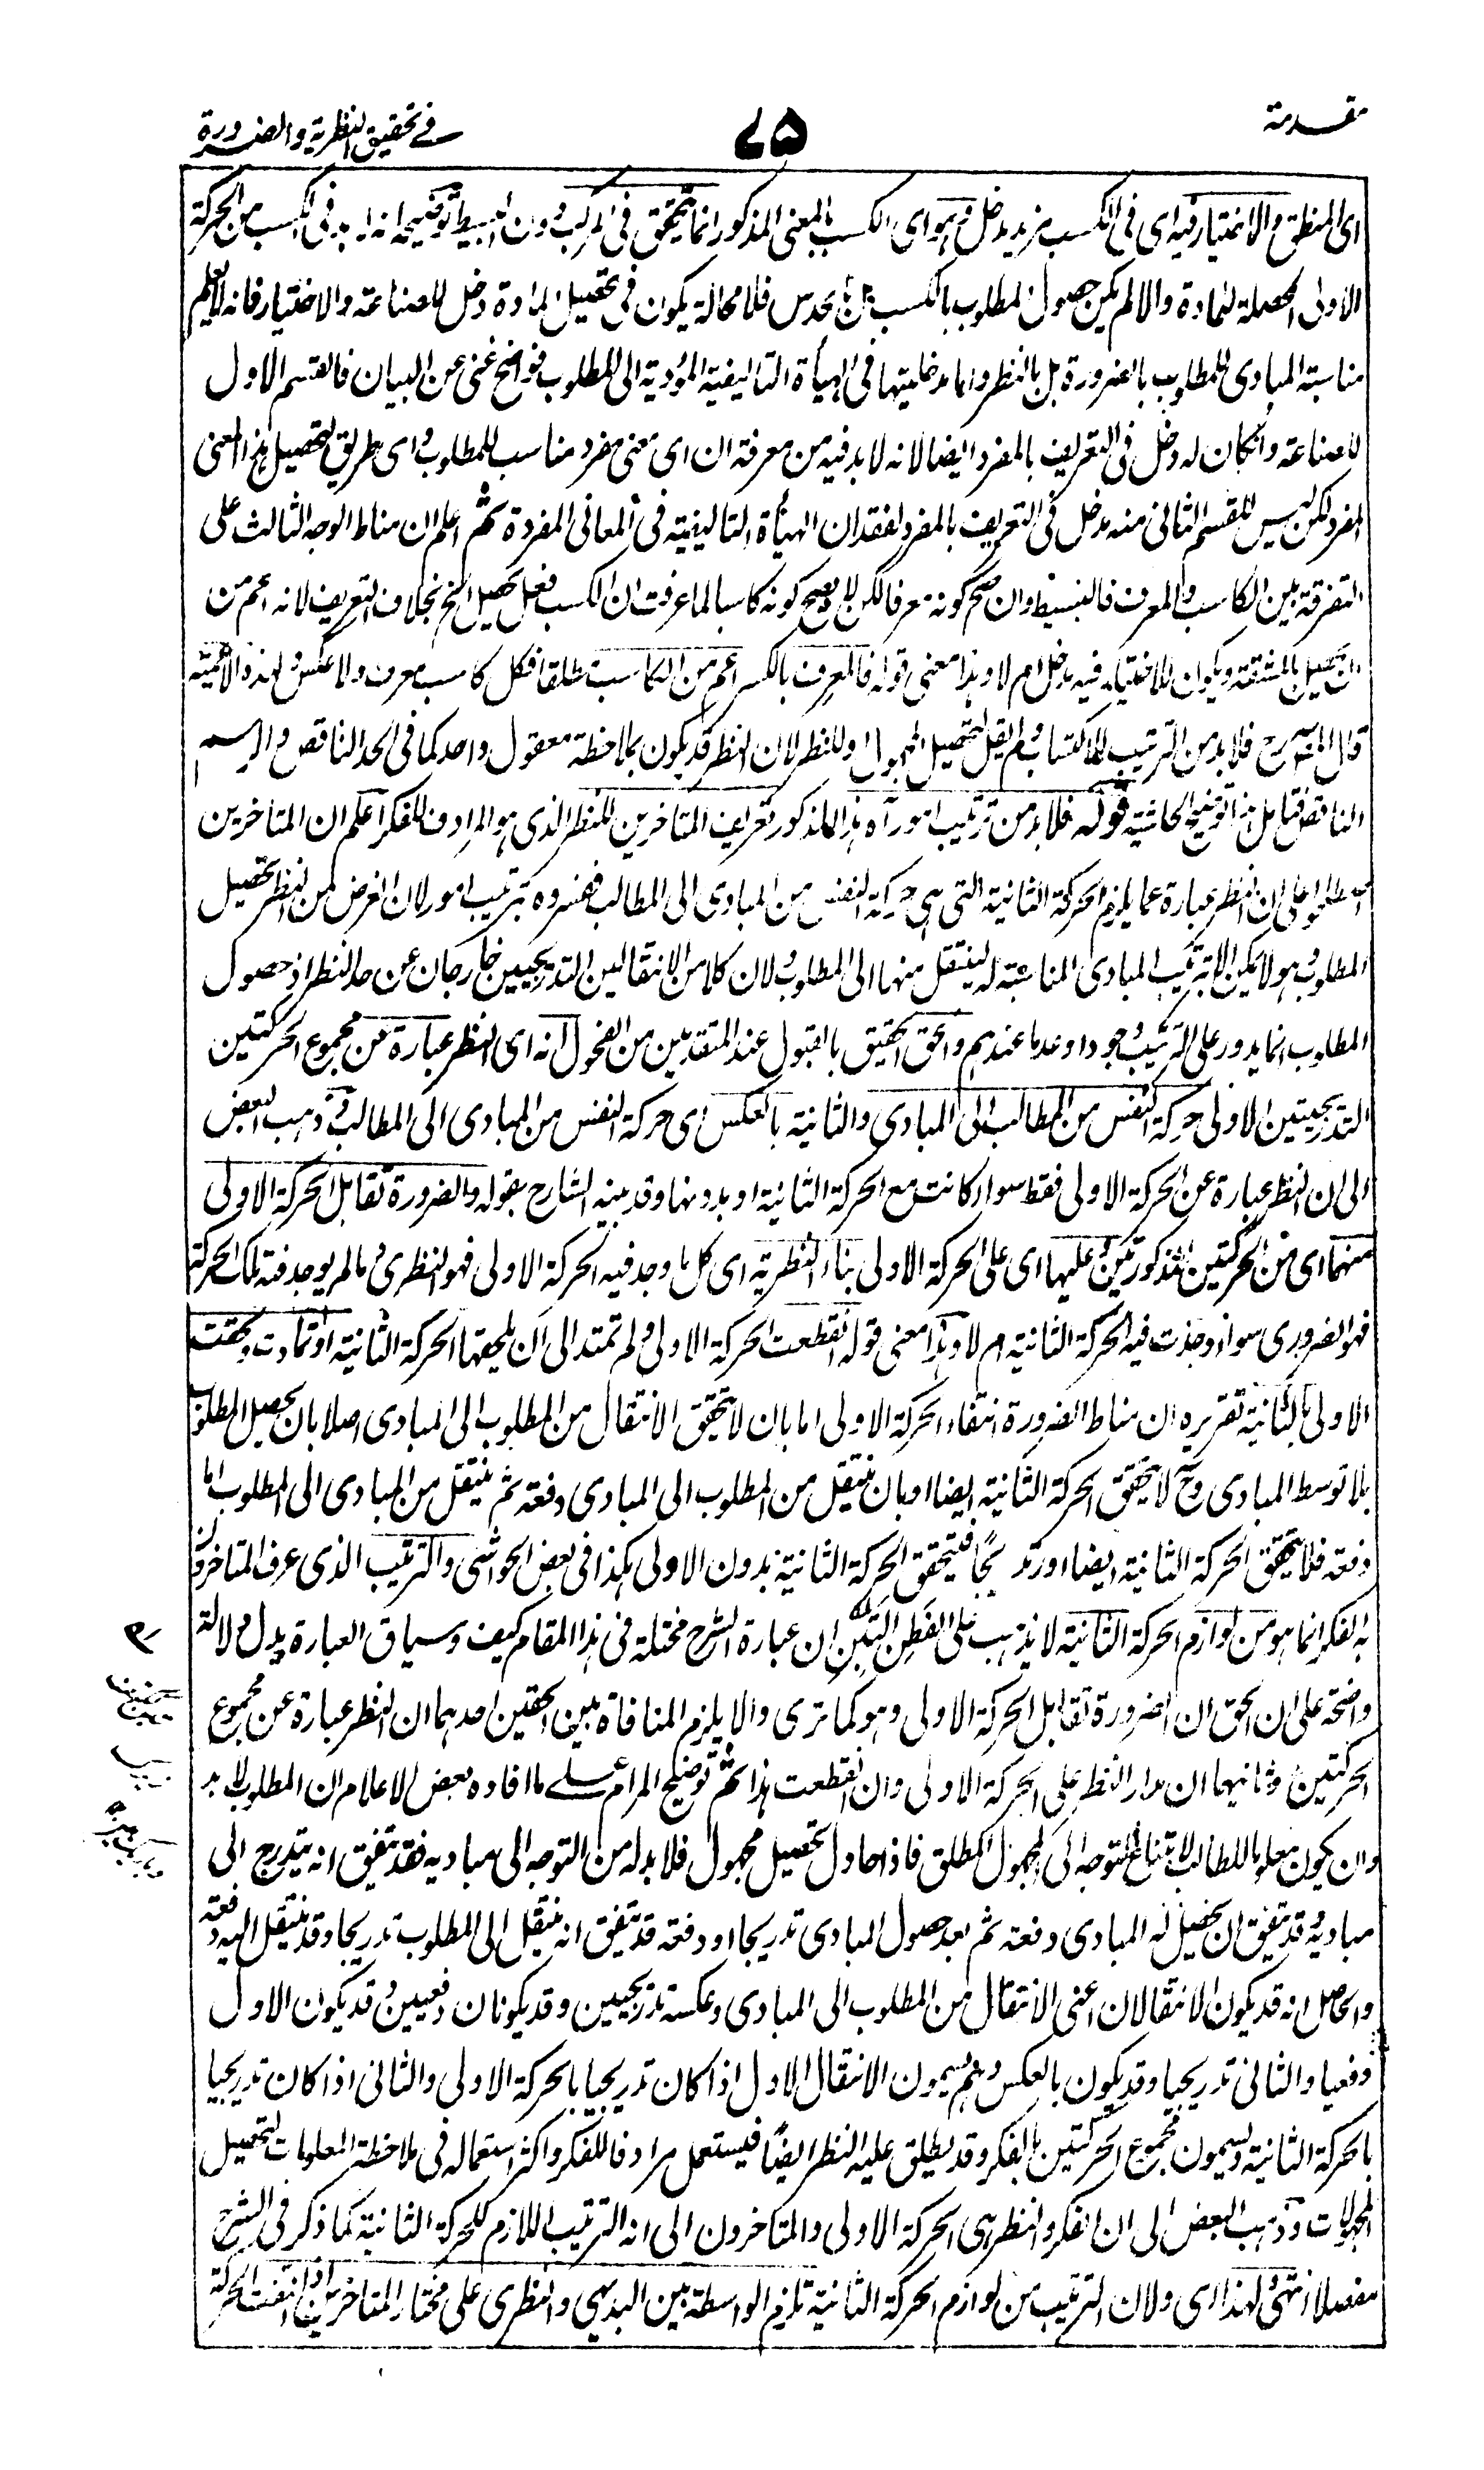 مقدمة
٧٥
في تحقيق النظرية والضرورة
اى المنطق والاختيار فيه اى فى الكسب مزيد دخل وهو اى الكسب بالمعنى المذكور انما يتحقق فى المركب دون البسيط توضيحه انه لا بد فى الكسب من الحركة
الاولى المحصلة للمادة والا لم يكن حصول المطلوب بالكسب بل بالحدس فلا محالة يكون فى تحصيل المادة دخل للصناعة والاختيار فانه لا يعلم
مناسبة المبادى للمطلوب بالضرورة بل بالنظر واما مدخليتها فى الهيأة التاليفية المؤدية الى المطلوب فواضح غنى عن البيان فالقسم الاول
للصناعة وانكان له دخل فى التعريف بالمفرد ايضا لانه لا بد فيه من معرفة ان اى معنى مفرد مناسب للمطلوب واى طريق لتحصيل هذا المعنى
المفرد لكن ليس للقسم الثانى منه مدخل فى التعريف بالمفرد لفقدان الهيأة التاليفية فى المعانى المفردة ثم اعلم ان مناط الوجه الثالث على
التفرقة بين الكاسب والمعرف فالبسيط وان صح كونه معرفا لكن لا يصح كونه كاسبا لما عرفت ان الكسب فعل تحصيل الخ بخلاف التعريف لانه اعم من
ان يحصل بالمشقة ويكون للاختيار فيه مدخل ام لا وهذا معنى قوله فالمعرف بالكسر اعم من الكاسب مطلقا فكل كاسب معرف ولا عكس لهذه الاعمية
قال الشارح فلا بد من الترتيب للاكتساب ولم يقل لتحصيل المجهول او للنظر لان النظر قد يكون بملاحظة معقول واحد كما فى الحد الناقص والرسم
الناقص فتامل هذا توضيح الحاشية قوله فلا بد من ترتيب امور آه هذا المذكور تعريف المتاخرين للنظر الذى هو المرادف للفكر اعلم ان المتاخرين
اصطلحوا على ان النظر عبارة عما يلزم الحركة الثانية التى هى حركة النفس من المبادى الى المطالب ففسروه بترتيب امور لان الغرض من النظر تحصيل
المطلوب وهو لا يمكن الا بترتيب المبادى المناسبة له لينتقل منها الى المطلوب ولان كلا من الانتقالين التدريجيين خارجان عن حد النظر اذ حصول
المطلوب انما يدور على الترتيب وجودا وعدما عندهم والحق الحقيق بالقبول عند المتقدمين من الفحول انه اى النظر عبارة عن مجموع الحركتين
التدريجيتين الاولى حركة النفس من المطالب الى المبادى والثانية بالعكس اى حركة النفس من المبادى الى المطالب وذهب البعض
الى ان النظر عبارة عن الحركة الاولى فقط سواء كانت مع الحركة الثانية او بدونها وقد بينه الشارح بقوله والضرورة تقابل الحركة الاولى
منهما اى من الحركتين المذكورتين وعليها اى على الحركة الاولى بناء النظرية اى كل ما وجد فيه الحركة الاولى فهو النظرى وما لم يوجد فيه تلك الحركة
فهو الضرورى سواء وجدت فيه الحركة الثانية ام لا وهذا معنى قوله انقطعت الحركة الاولى ولم تمتد الى ان يلحقها الحركة الثانية او تمادت ولحقت
الاولى بالثانية تقريره ان مناط الضرورة انتفاء الحركة الاولى اما بان لا يتحقق الانتقال من المطلوب الى المبادى اصلا بان يحصل المطلوب
بلا توسط المبادى وح لا يتحقق الحركة الثانية ايضا او بان ينتقل من المطلوب الى المبادى دفعة ثم ينتقل من المبادى الى المطلوب اما
دفعة فلا يتحقق الحركة الثانية ايضا او تدريجًا فيتحقق الحركة الثانية بدون الاولى هكذا فى بعض الحواشى والترتيب الذى عرف المتاخرون
به الفكر انما هو من لوازم الحركة الثانية لا يذهب على الفطن اللبن ان عبارة الشرح مختلة فى هذا المقام كيف وسياق العبارة يدل دلالة
واضحة على ان الحق ان الضرورة تقابل الحركة الاولى وهو كما ترى والا يلزم المنافاة بين الحقين احدهما ان النظر عبارة عن مجموع
الحركتين وثانيهما ان مدار النظر على الحركة الاولى وان انقطعت هذا ثم توضيح المرام على ما افاده بعض الاعلام ان المطلوب لا بد
وان يكون معلوما للطالب لامتناع التوجه الى المجهول المطلق فاذا حاول تحصيل مجهول فلا بد له من التوجه الى مباديه فقد يتفق انه يتدرج الى
مباديه وقد يتفق ان يحصل له المبادى دفعة ثم بعد حصول المبادى تدريجا او دفعة قد يتفق انه ينتقل الى المطلوب تدريجا وقد ينتقل اليه دفعة
والحاصل انه قد يكون الانتقالان اعنى الانتقال من المطلوب الى المبادى وعكسه تدريجيين وقد يكونان دفعيين وقد يكون الاول
دفعيا والثانى تدريجيا وقد يكون بالعكس وهم يسمون الانتقال الاول اذا كان تدريجيا بالحركة الاولى والثانى اذا كان تدريجيا
بالحركة الثانية ويسمون مجموع الحركتين بالفكر وقد يطلق عليه النظر ايضًا فيستعمل مرادفا للفكر واكثر استعماله فى ملاحظة المعلومات لتحصيل
المجهولات وذهب البعض الى ان الفكر والنظر هى الحركة الاولى والمتاخرون الى انه الترتيب اللازم للحركة الثانية كما ذكر فى الشرح
مفصلا انتهى لهذا اى ولان الترتيب من لوازم الحركة الثانية تلزم الواسطة بين البديهى والنظرى على مختار المتاخرين اذا انتفت الحركة